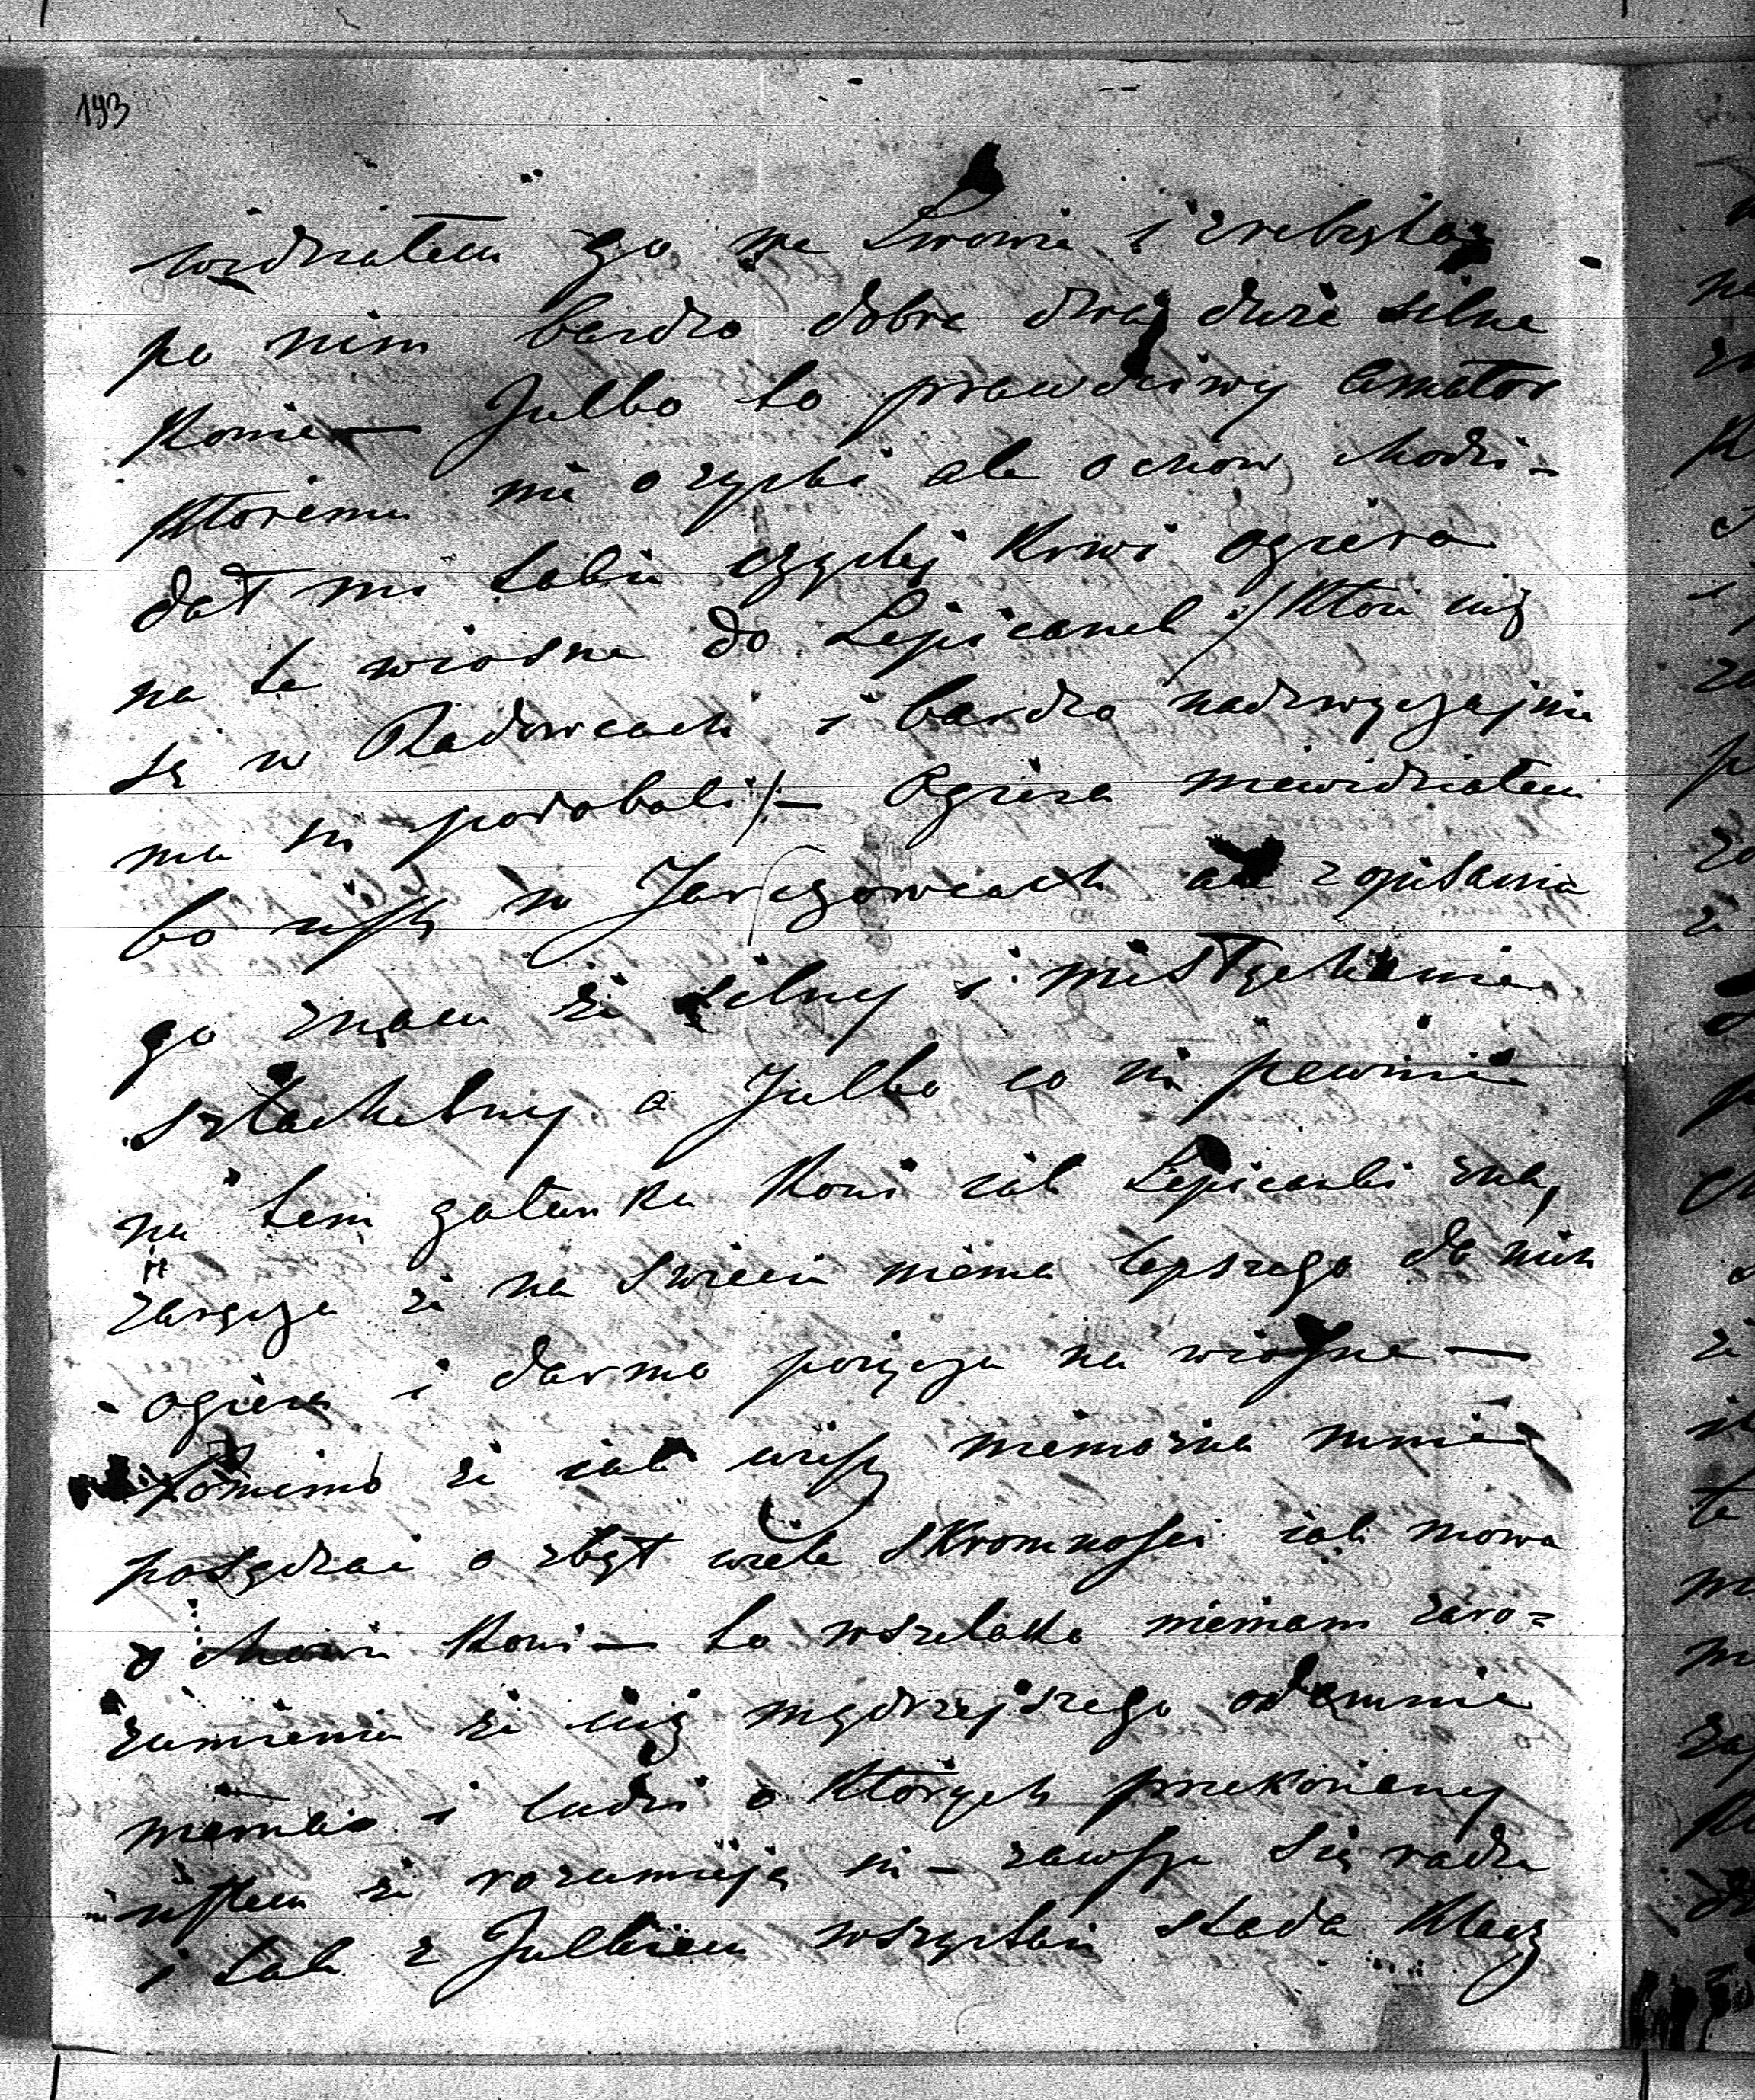 193
widziałem go we Lwowie i zrebięta
po nim bardzo dobre duże silne
Konie — Julko to prawdziwy amator
Ktoremu nie o zyski ale o chow chodzi –
dał mi takie czystej Krwi ogiera
na te wiosne do Lipicanek /: Ktore
są w Radowcach i bardzo nadzwyczajnie
mu si podobali :/ — Ogiera niewidziałem
bo jest w Jarczowcach ale z opisania
go znam że silny i niesłychanie
szlachetny a Julko co si pewnie
na tem gatunku Koni jak Lipicanki zna,
zaręcza że na swiecie niema lepszego do nich
ogiera i darmo pożycza na wiosne —
Pomimo że jak wiesz niemożna mnie
posądzać o zbyt wiele skromnosci jak mowa
o chowie Koni — to wszelako niemam zaro=
zumienia że nic mądrzejszego odemnie
niemasz i ludzi o Ktorych przekonany
jestem że rozumieją si — zawsze się radze
i tak z Julkiem wszystkie stada Klacz